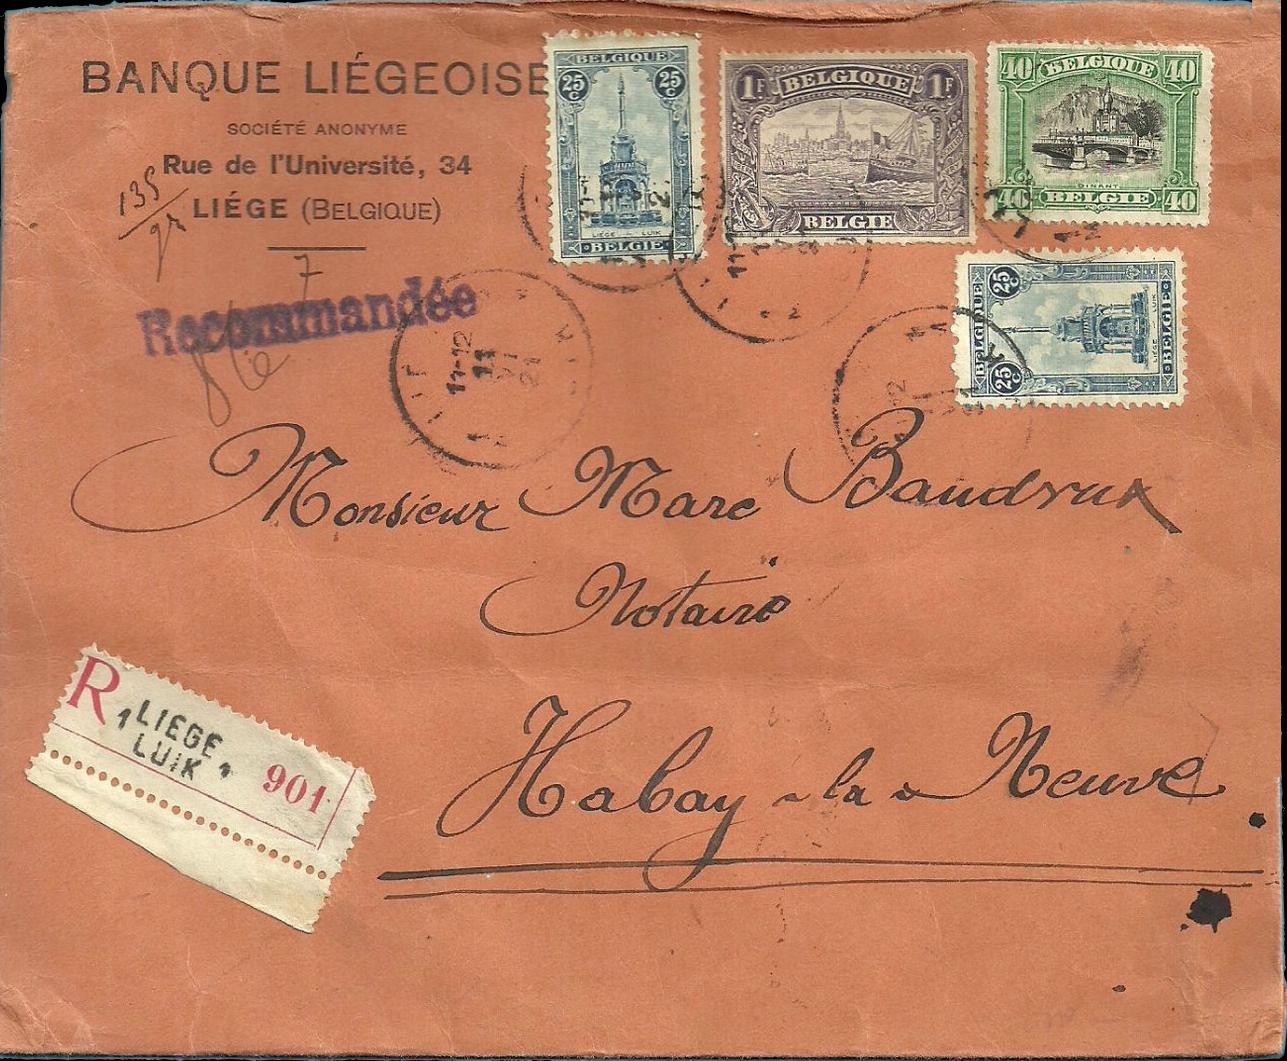 BANQUE LIÉGEOISE
SOCIÉTÉ ANONYME
Rue de l'Université, 34
LIÉGE (BELGIQUE)
135
gr
7
Recommandée
BELGIQUE
25c 25c
LIÉGE LUIK
BELGIË
1F BELGIQUE 1F
BELGIE
40 BELGIQUE 40
DINANT
40 BELGIE 40
BELGIQUE
25c 25c
LIÉGE LUIK
BELGIË
11-12
11
VI
21
Monsieur Marc Baudrux
Notaire
Habay-la-Neuve
R
1 LIEGE
LUIK 1
901